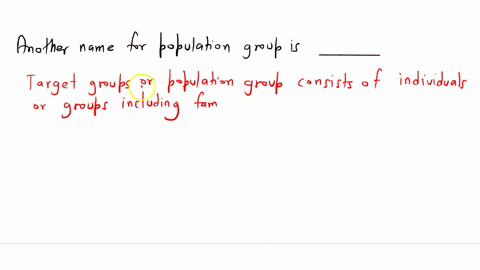 Another name for population group is ______
Target groups or population group consists of individuals
or groups including fam